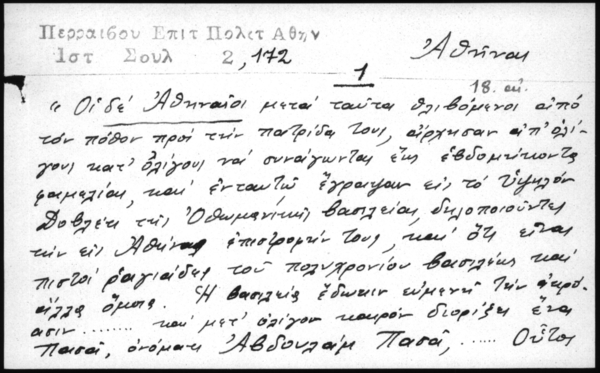 Περραιβου Επιτ Πολετ Αθην
Ιστ Σουλ 2, 172
Ἀθῆναι
1
18. αι.
" Οἱ δέ Ἀθηναῖοι μετά ταῦτα θλιβόμενοι ἀπό
τόν πόθον πρός τήν πατρίδα τους, ἄρχησαν ἀπ' ὀλί-
γους κατ' ὀλίγους νά συνάγωνται ἕως ἑβδομήκοντα
φαμελίαι, καί ἐνταυτῷ ἔγραψαν εἰς τό Ὑψηλόν
Δοβλέτι τῆς Ὀθωμανικῆς βασιλείας, δηλοποιοῦντες
τήν εἰς Ἀθήνας ἐπιστροφήν τους, καί ὅτι εἶναι
πιστοί ραγιάδες τοῦ πολυχρονίου βασιλέως καί
ἄλλα ὅμοια. Ἡ βασιλεία ἔδωκεν εὐμενῆ τήν ἀκρό-
ασιν ........ καί μετ' ὀλίγον καιρόν διορίζει ἕνα
Πασᾶ, ὀνόματι Ἀβδουλάμ Πασᾶ, ..... Οὗτος